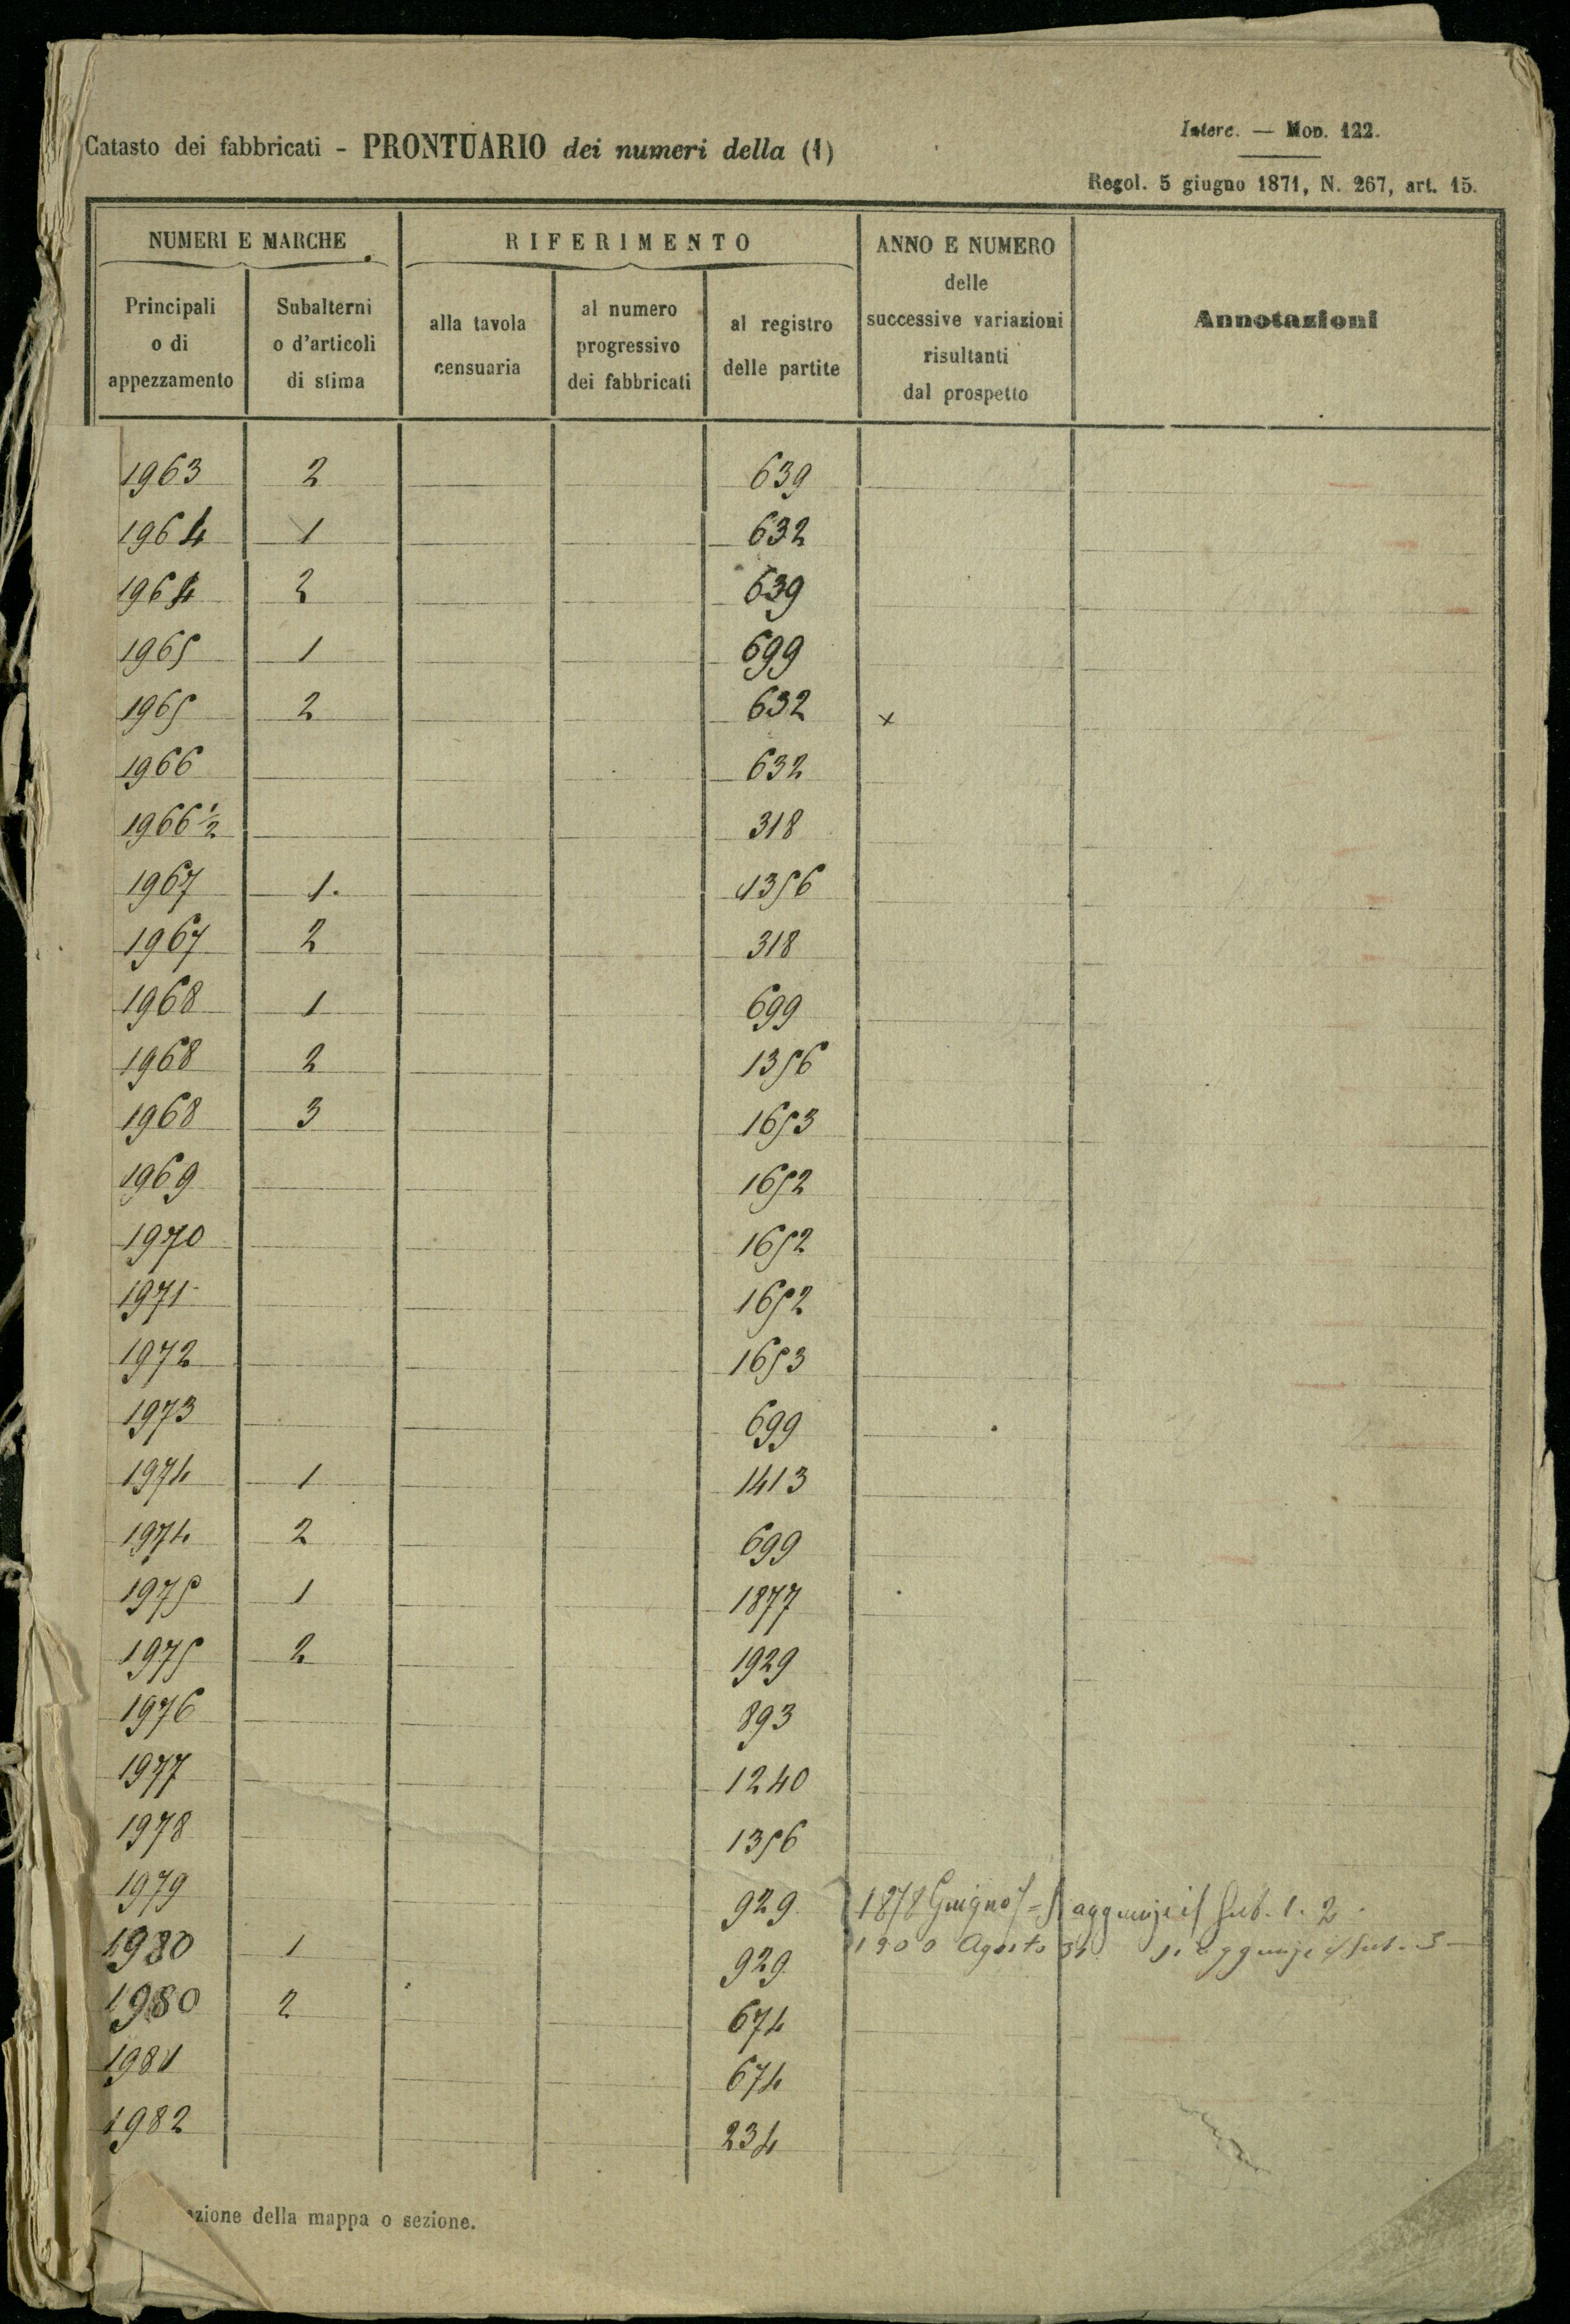 Catasto dei fabbricati - PRONTUARIO dei numeri della (1)
Interc. — Mod. 122.
Regol. 5 giugno 1871, N. 267, art. 15.
NUMERI E MARCHE
RIFERIMENTO
ANNO E NUMERO
delle
successive variazioni
risultanti
dal prospetto
Annotazioni
Principali
o di
appezzamento
Subalterni
o d'articoli
di stima
alla tavola
censuaria
al numero
progressivo
dei fabbricati
al registro
delle partite
1963 2 639
1964 1 632
1964 2 639
1965 1 699
1965 2 632 x
1966 632
1966 1/2 318
1967 1. 1356
1967 2 318
1968 1 699
1968 2 1356
1968 3 1653
1969 1652
1970 1652
1971 1652
1972 1653
1973 699
1974 1 1413
1974 2 699
1975 1 1877
1975 2 1929
1976 893
1977 1240
1978 1356
1979 929 1878 Giugno aggiunge il Sub. 1. 2.
1980 1 929 1900 Agosto 31 si aggiunge il Sub. 3
1980 2 674
1981 674
1982 234
zione della mappa o sezione.